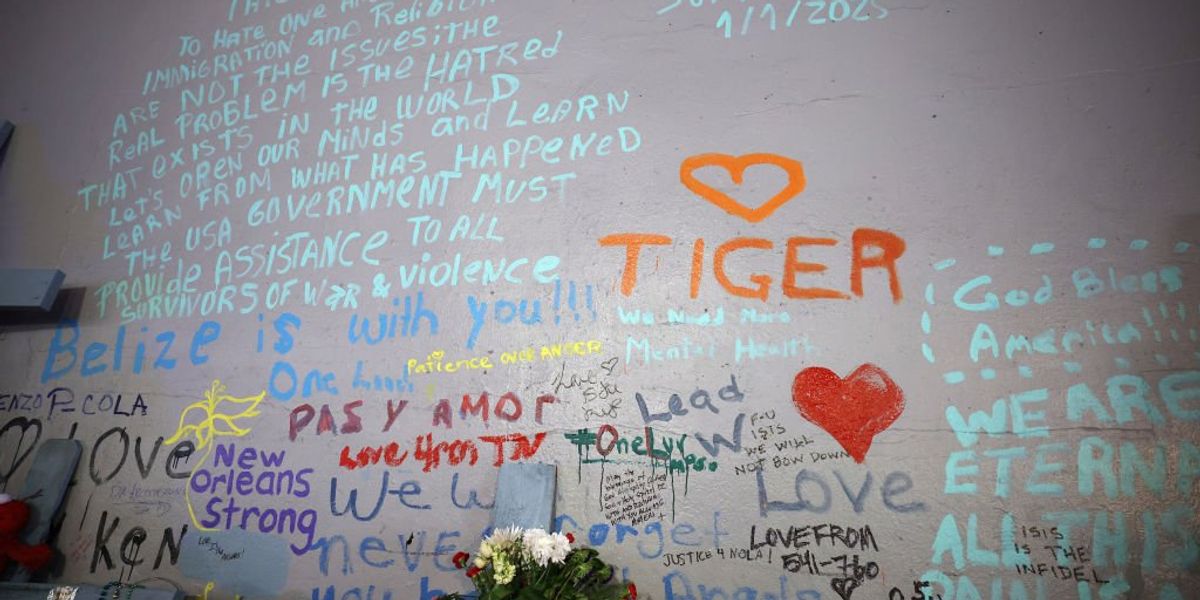 TO HATE ONE
IMMIGRATION and Religion
ARE NOT THE ISSUES; THE
ReAL PROBLEM IS THE HATRED
THAT eXISTS IN THE WORLD
Let's OPEN OUR MiNds and LeARN
LEARN FROM WHAT HAS HAPPeNeD
THE USA GOVeRNMENT MUST
PROVIde ASSISTANCE TO ALL
SURVIVORS OF WAR & violence
1/1/2025
TIGER
Belize is with you!!!
One
Patience OVER ANGER
We Need More
Mental Health
God Bless
America!!!
P-COLA
PAS Y AMOR
Love 4ros TN
Love
Lead
W
#OneLuv
F-U
ISIS
WE WILL
NOT BOW DOWN
WE ARE
ETERNA
LOve
New
Orleans
Strong
We W
LOVE
KeN
never forget
JUSTICE 4 NOLA!
LOVE FROM
541-760
ALL THIS
PAIN IS
ISIS
IS THE
INFIDEL